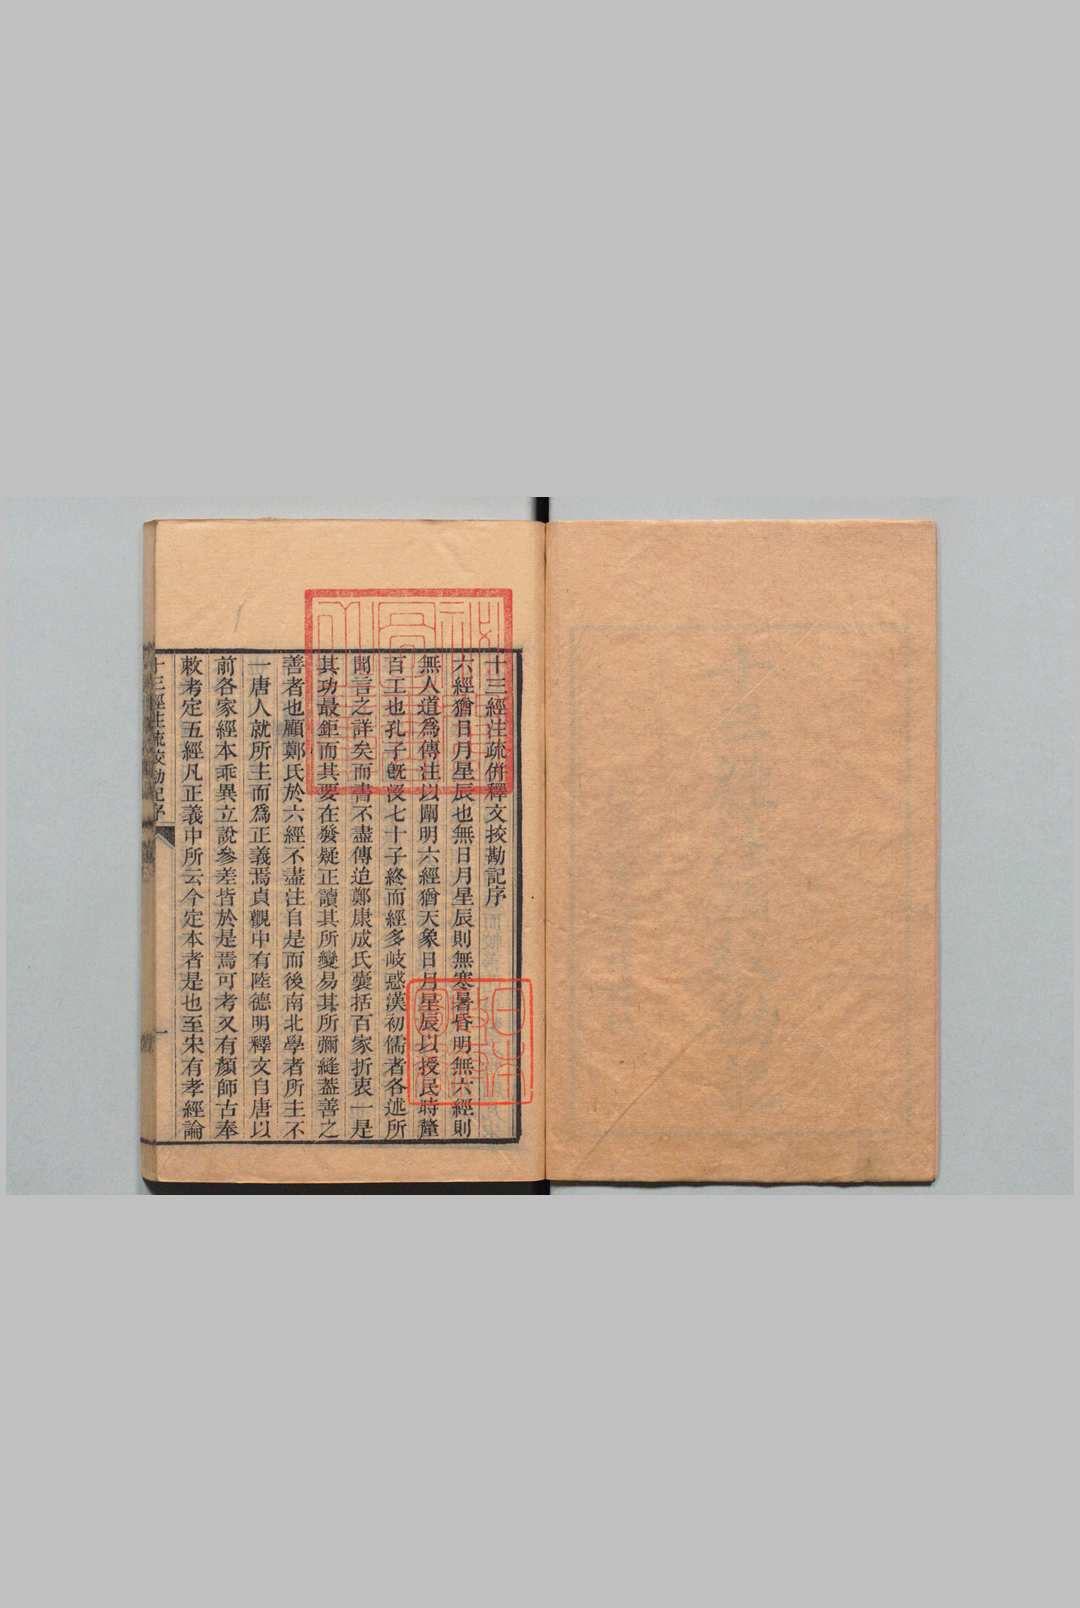 十三經注疏併釋文挍勘記序
六經猶日月星辰也無日月星辰則無寒暑昏明無六經則
無人道爲傳注以闡明六經猶天象日月星辰以授民時釐
百工也孔子旣沒七十子終而經多岐惑漢初儒者各述所
聞言之詳矣而書不盡傳迨鄭康成氏囊括百家折衷一是
其功最鉅而其要在發疑正讀其所變易其所彌縫蓋善之
善者也顧鄭氏於六經不盡注自是而後南北學者所主不
一唐人就所主而爲正義焉貞觀中有陸德明釋文自唐以
前各家經本乖異立說參差皆於是焉可考又有顏師古奉
敕考定五經凡正義中所云今定本者是也至宋有孝經論
十三經注疏校勘記序
一